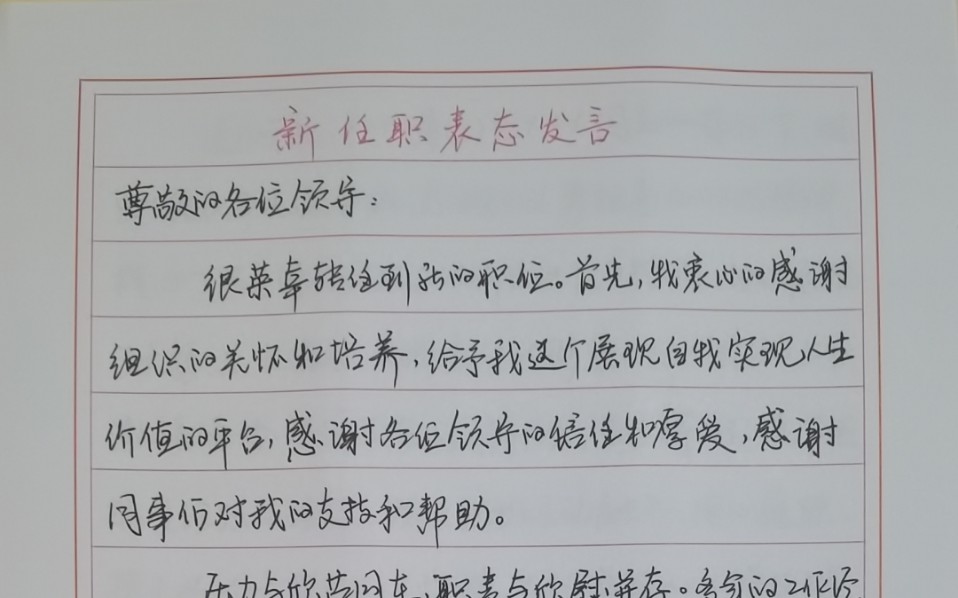 新任职表态发言
尊敬的各位领导：
很荣幸转任到新的职位。首先，我衷心的感谢
组织的关怀和培养，给予我这个展现自我实现人生
价值的平台，感谢各位领导的信任和厚爱，感谢
同事们对我的支持和帮助。
压力与欣共同在，职责与欣慰并存。多年的工作经